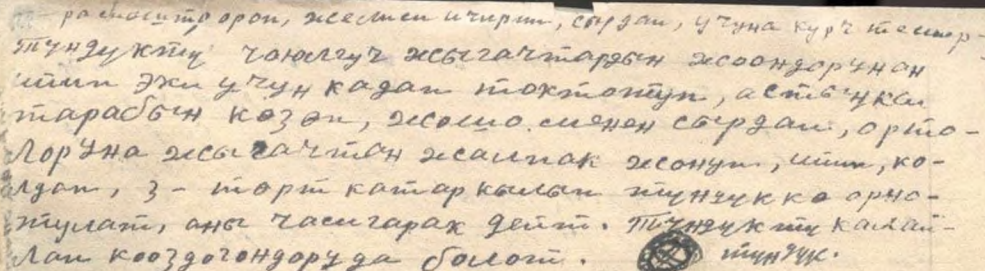 ороп, желими ичирип, сырдап, учуна курч темир-
түндүктү чоюлгуч жыгачтардын жоондорунан
ийип эки учун кадап токтотуп, астыңкы
тарабын көзөп, жошо менен сырдап, орто-
лоруна жыгачтан жалпак жонуп, ийип, ко-
лдоп, 3 - төрт катар кылып түндүккө орно-
тулат, аны чамгарак дейт. Түндүктү калай-
лап кооздогондору да болот.
түндүк.